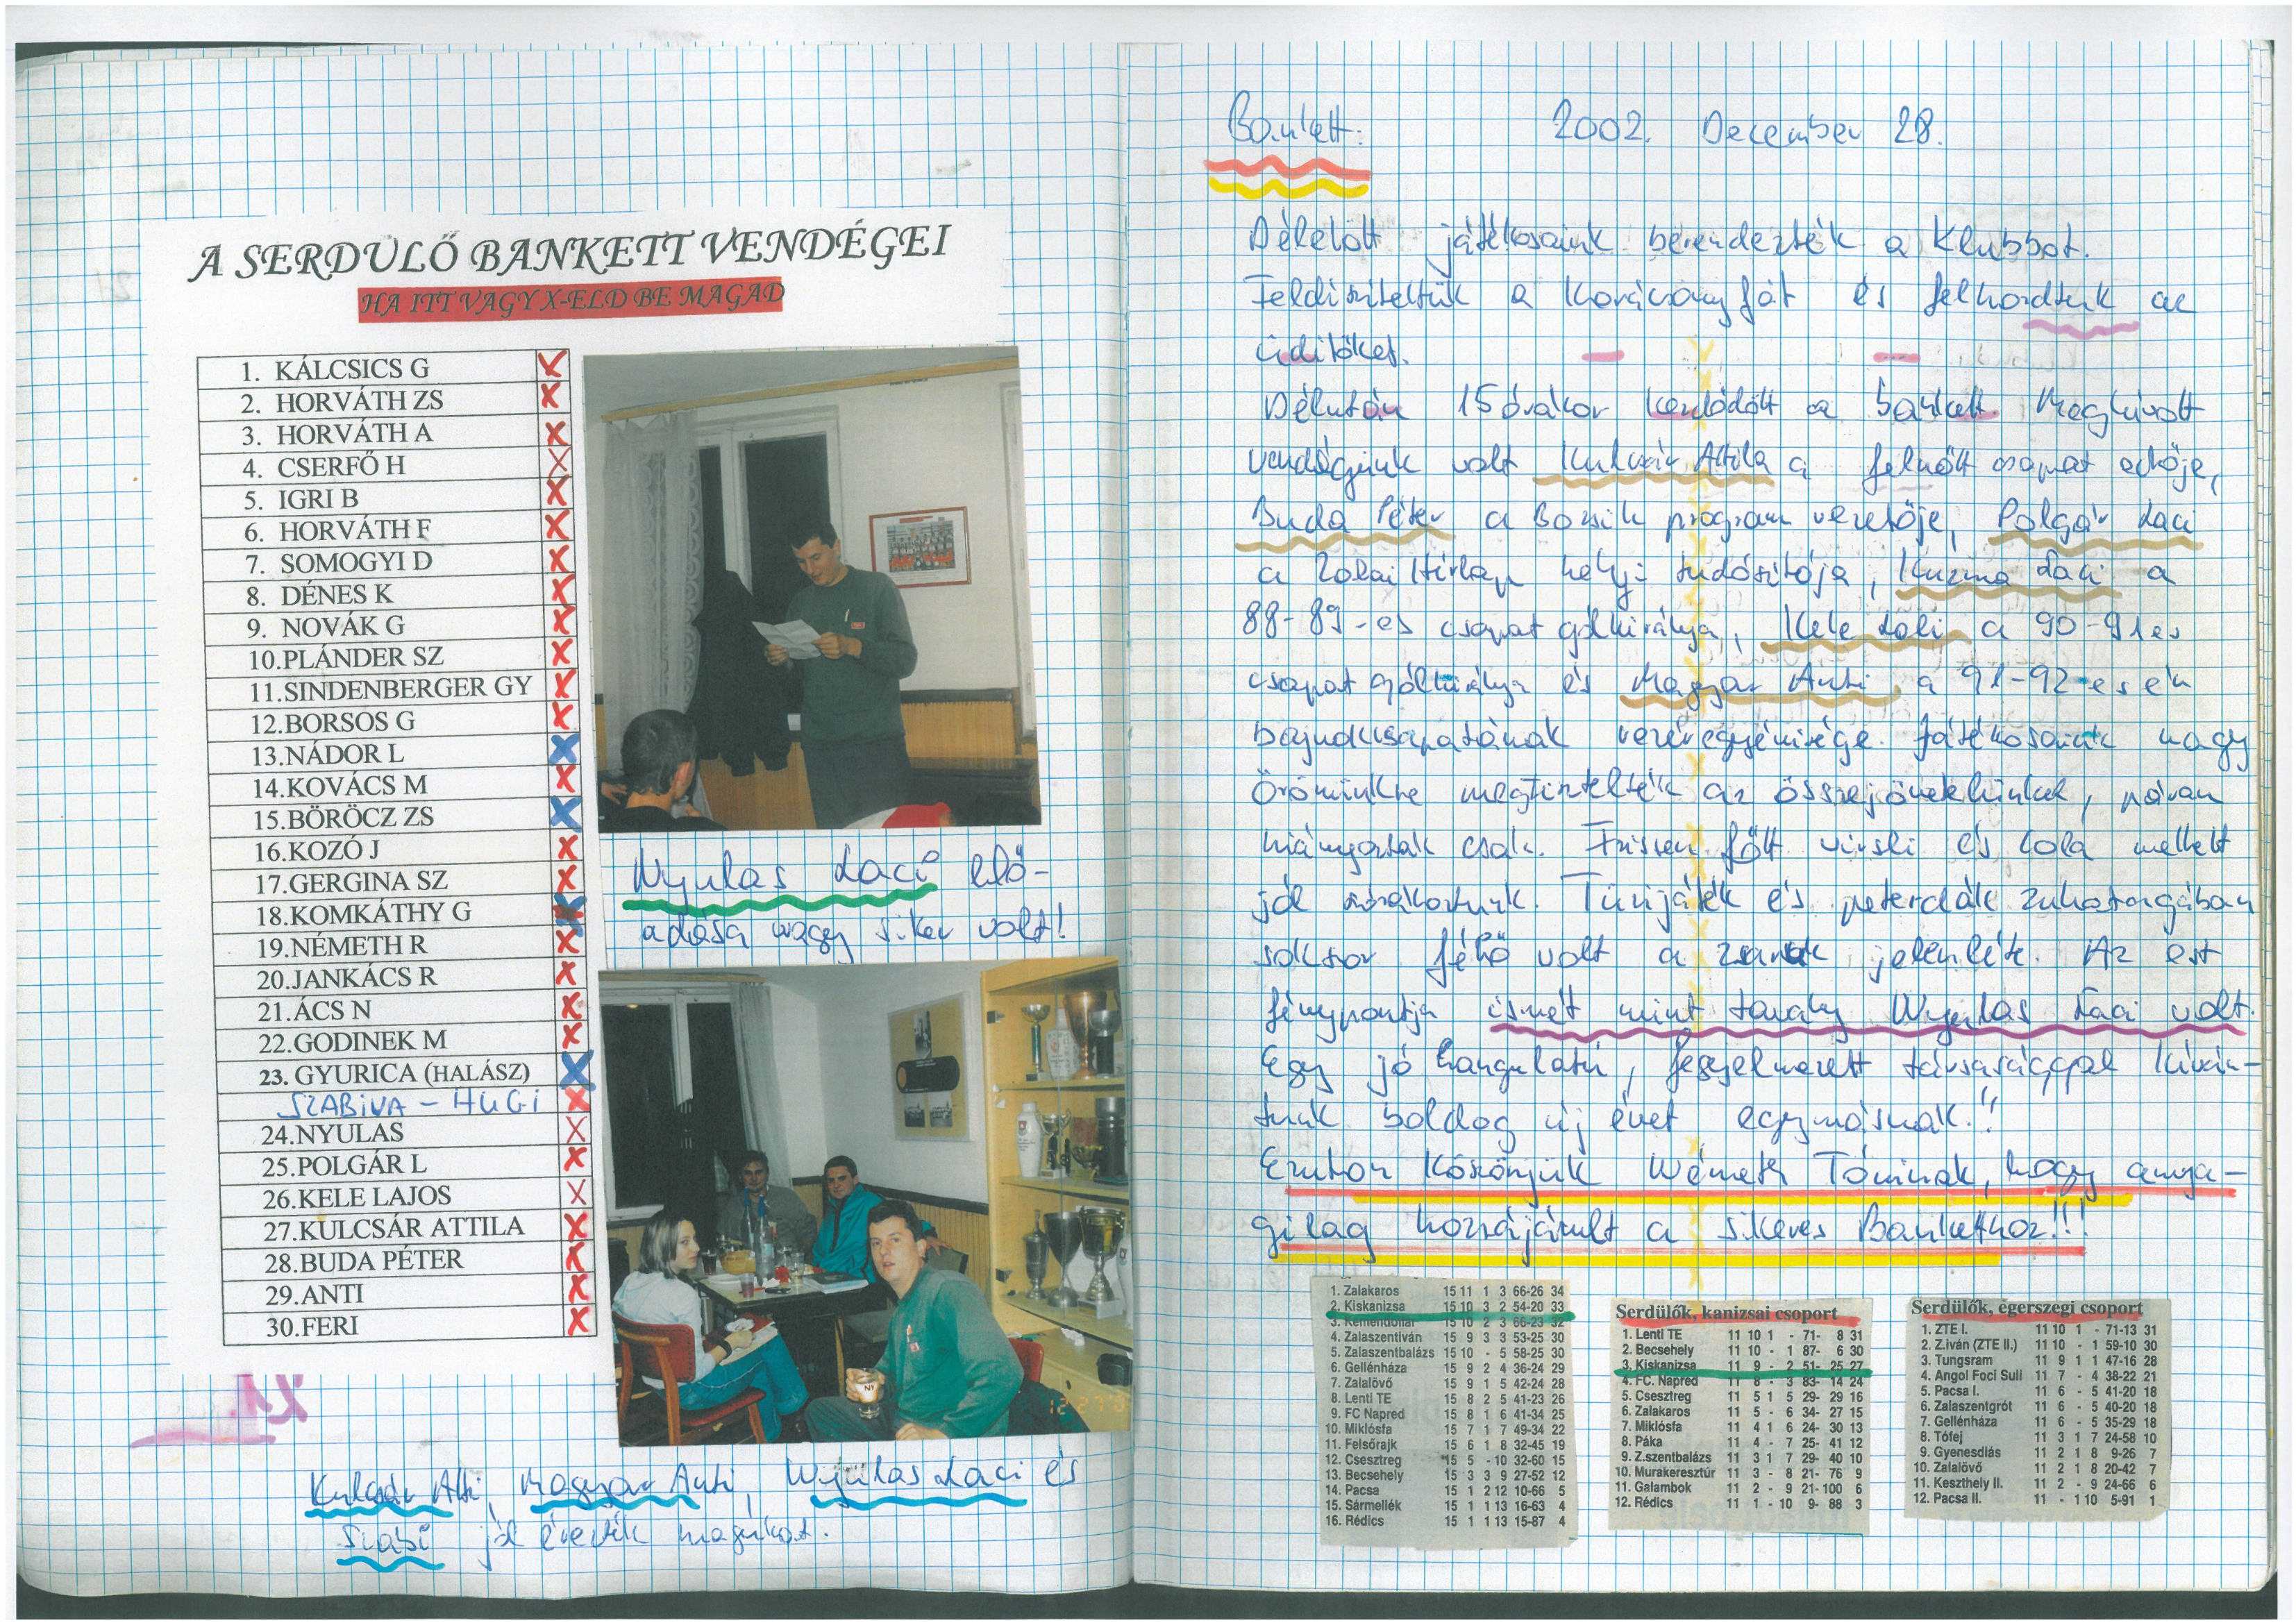 A SERDÜLŐ BANKETT VENDÉGEI
HA ITT VAGY X-ELD BE MAGAD
1. KÁLCSICS G X
2. HORVÁTH ZS X
3. HORVÁTH A X
4. CSERFŐ H X
5. IGRI B X
6. HORVÁTH F X
7. SOMOGYI D X
8. DÉNES K X
9. NOVÁK G X
10.PLÁNDER SZ X
11.SINDENBERGER GY X
12.BORSOS G X
13.NÁDOR L X
14.KOVÁCS M X
15.BÖRÖCZ ZS X
16.KOZÓ J X
17.GERGINA SZ X
18.KOMKÁTHY G X
19.NÉMETH R X
20.JANKÁCS R X
21.ÁCS N X
22.GODINEK M X
23. GYURICA (HALÁSZ) X
SZABINA - HUGI X
24.NYULAS X
25.POLGÁR L X
26.KELE LAJOS X
27.KULCSÁR ATTILA X
28.BUDA PÉTER X
29.ANTI X
30.FERI X
Nyulas Laci elő-
adása nagy siker volt!
Kulcsár Atti, Magyar Anti, Nyulas Laci és
Szabi jól érezték magukat.
21.
Bankett: 2002. December 28.
Délelőtt játékosaink berendezték a Klubbot.
Feldíszítettük a karácsonyfát és felhordtuk az
üdítőket.
Délután 15 órakor kezdődött a bankett. Meghívott
vendégeink volt Kulcsár Attila a felnőtt csapat edzője,
Buda Péter a Bozsik program vezetője, Polgár Laci
a Zalai Hírlap helyi tudósítója, Kuzma Laci a
88-89-es csapat gólkirálya, Kele Lali a 90-91 es
csapat gólkirálya és Magyar Anti a 91-92-es év
bajnokcsapatának vezéregyénisége. Játékosaink nagy
örömünkre megtisztelték az összejövetelünket, páran
hiányoztak csak. Frissen főtt virsli és cola mellett
jól szórakoztunk. Tüzijáték és peterdák zuhatagában
sokszor féltő volt a zsaruk jelenléte. Az est
fénypontja ismét mint tavaly Nyulas Laci volt.
Egy jó hangulatú, fegyelmezett társasággal kíván-
tunk boldog új évet egymásnak!!
Ezuton köszönjük Németh Tóninak, hogy anya-
gilag hozzájárult a sikeres Banketthoz!!!
1. Zalakaros 15 11 1 3 66-26 34
2. Kiskanizsa 15 10 3 2 54-20 33
3. Kemendollár 15 10 2 3 66-23 32
4. Zalaszentiván 15 9 3 3 53-25 30
5. Zalaszentbalázs 15 10 - 5 58-25 30
6. Gellénháza 15 9 2 4 36-24 29
7. Zalalövő 15 9 1 5 42-24 28
8. Lenti TE 15 8 2 5 41-23 26
9. FC Napred 15 8 1 6 41-34 25
10. Miklósfa 15 7 1 7 49-34 22
11. Felsőrajk 15 6 1 8 32-45 19
12. Csesztreg 15 5 - 10 32-60 15
13. Becsehely 15 3 3 9 27-52 12
14. Pacsa 15 1 2 12 10-66 5
15. Sármellék 15 1 1 13 16-63 4
16. Rédics 15 1 1 13 15-87 4
Serdülők, kanizsai csoport
1. Lenti TE 11 10 1 - 71- 8 31
2. Becsehely 11 10 - 1 87- 6 30
3. Kiskanizsa 11 9 - 2 51- 25 27
4. FC. Napred 11 8 - 3 83- 14 24
5. Csesztreg 11 5 1 5 29- 29 16
6. Zalakaros 11 5 - 6 34- 27 15
7. Miklósfa 11 4 1 6 24- 30 13
8. Páka 11 4 - 7 25- 41 12
9. Z.szentbalázs 11 3 1 7 29- 40 10
10. Murakeresztúr 11 3 - 8 21- 76 9
11. Galambok 11 2 - 9 21-100 6
12. Rédics 11 1 - 10 9- 88 3
Serdülők, egerszegi csoport
1. ZTE I. 11 10 1 - 71-13 31
2. Z.iván (ZTE II.) 11 10 - 1 59-10 30
3. Tungsram 11 9 1 1 47-16 28
4. Angol Foci Suli 11 7 - 4 38-22 21
5. Pacsa I. 11 6 - 5 41-20 18
6. Zalaszentgrót 11 6 - 5 40-20 18
7. Gellénháza 11 6 - 5 35-29 18
8. Tófej 11 3 1 7 24-58 10
9. Gyenesdiás 11 2 1 8 9-26 7
10. Zalalövő 11 2 1 8 20-42 7
11. Keszthely II. 11 2 - 9 24-66 6
12. Pacsa II. 11 - 1 10 5-91 1